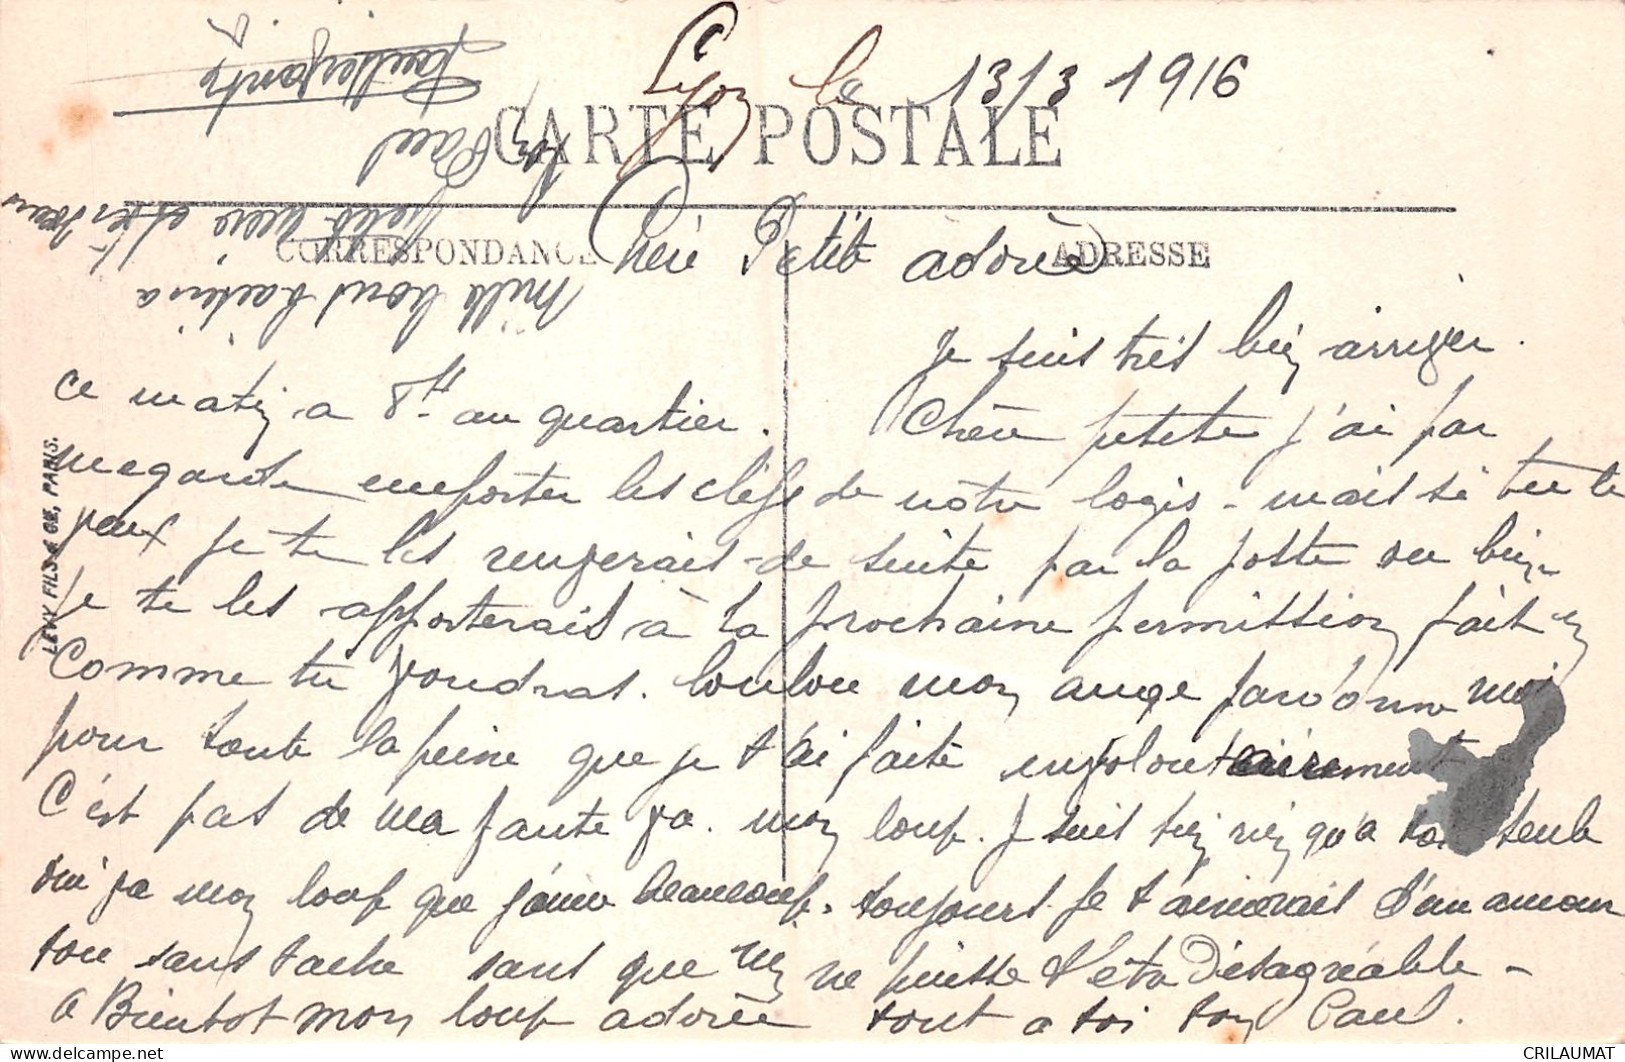 Lyon le 13/3 1916
CARTE POSTALE
CORRESPONDANCE
ADRESSE
Chère Petite adorèe
Je suis très bien arriver.
ce matin a 8H au quartier. Chère petite j'ai par
megarde emporter les clefs de nôtre logis - mais si tu le
veux je te les renverais de suite par la poste ou bien
je te les apporterais à la prochaine permission fait en
Comme tu voudras. loulou mon ange pardonne moi
pour toute la peine que je t'ai faite involontairement
C'est pas de ma faute va. mon loup. J suis bien rien qu'a toi seule
oui va mon loup que j'aime beaucoup. toujours je t'aimerais d'un amour
tou sans tache sans que rien ne puisse t'être Désagréable -
A Bientot mon loup adorèe tout a toi ton Paul.
Mille bons baisers a
ton
Paul
LEVY FILS & CIE, PARIS.
CRILAUMAT